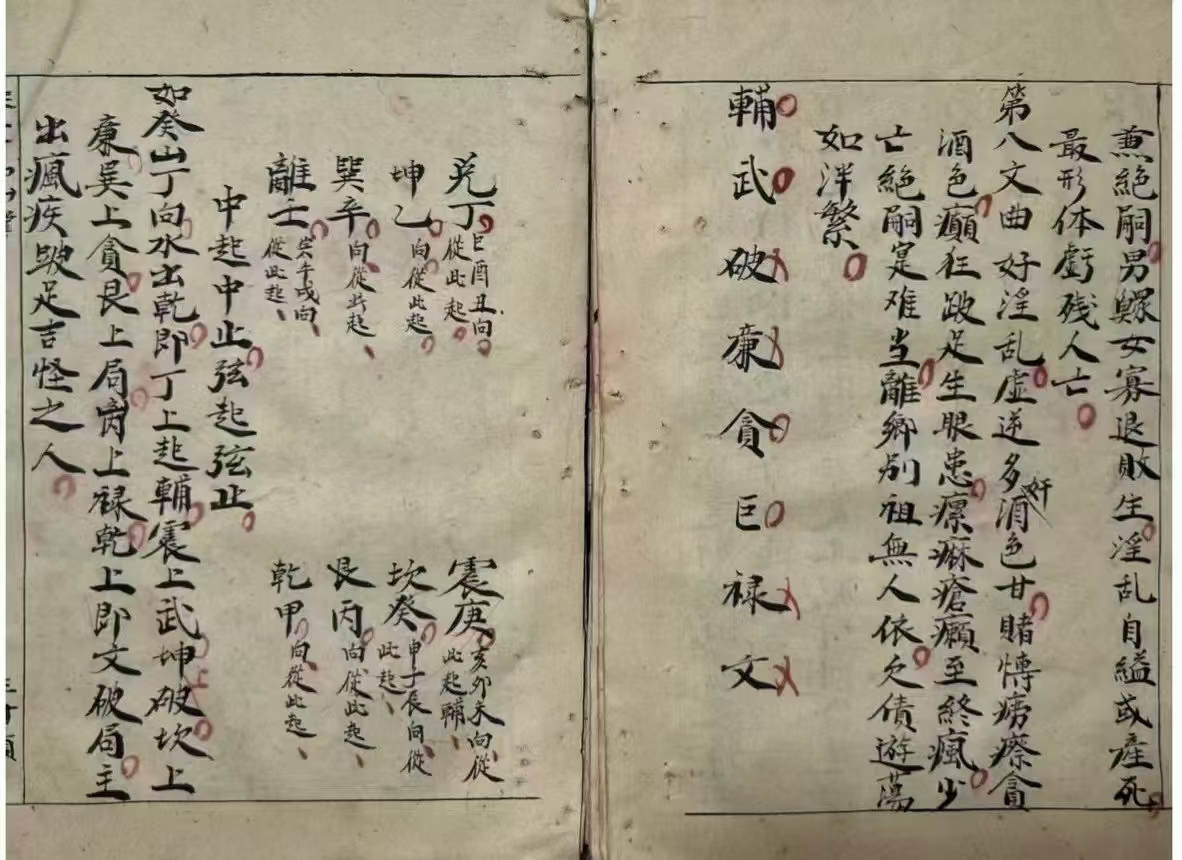 兼絕嗣男鰥女寡退敗生淫乱自縊或產死
最形体虧残人亡
第八文曲好淫乱虚逆多酒色甘賭博痨瘵貪
奸
酒色癲狂跛足生眼患瘰痳瘡癩至終瘋少
亡絕嗣寔难当離鄉別祖無人依欠債遊蕩
如泮繁
輔武破廉貪巨禄文
兑丁巳酉丑向從此起
坤乙向從此起
巽辛向從此起
離壬寅午戌向從此起
震庚亥卯未向從此起輔
坎癸申子辰向從此起
艮丙向從此起
乾甲向從此起
中起中止弦起弦止
如癸山丁向水出乾即丁上起輔震上武坤破坎上
廉巽上貪艮上局禽上禄乾上即文破局主
出瘋疾跛足吉怪之人